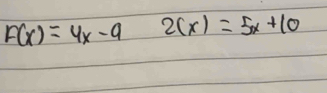 F(x) = 4x - 9 2(x) = 5x + 10